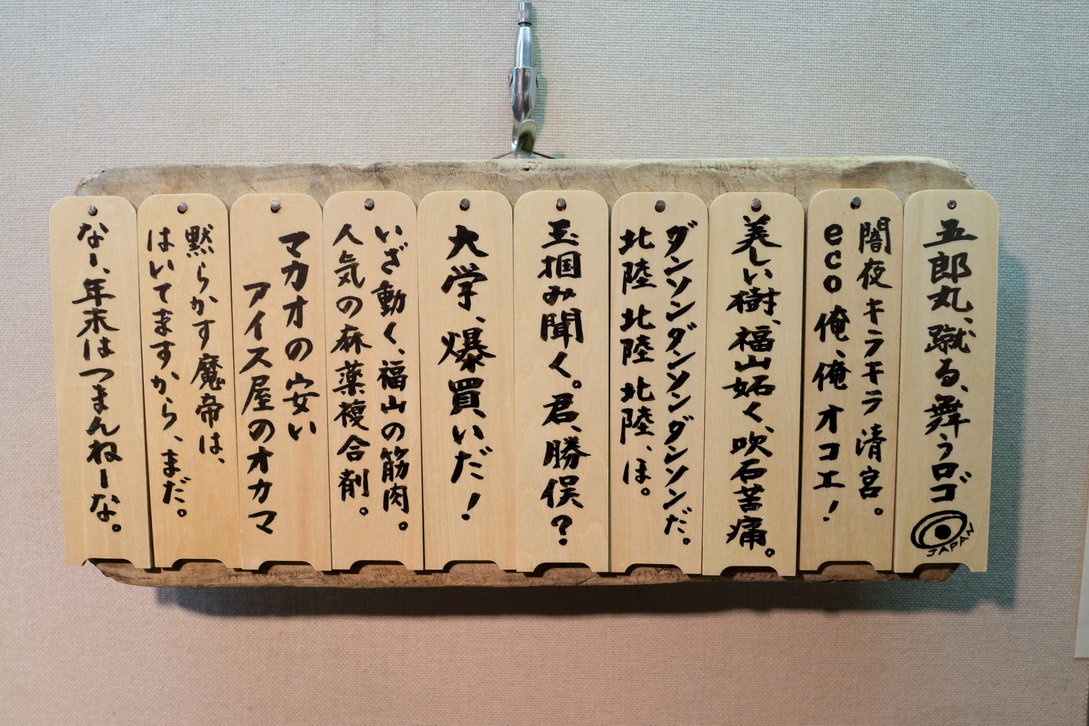 五郎丸、蹴る、舞うロゴ
JAPAN
闇夜キラキラ清宮。
eco俺、俺オコエ！
美しい樹、福山妬く、吹石苦痛。
ダンソンダンソンダンソンだ。
北陸北陸北陸、ほ。
玉掴み聞く。君、勝俣？
大学、爆買いだ！
いざ動く、福山の筋肉。
人気の麻薬複合剤。
マカオの安い
アイス屋のオカマ
黙らかす魔帝は、
はいてますから、まだ。
なー、年末はつまんねーな。